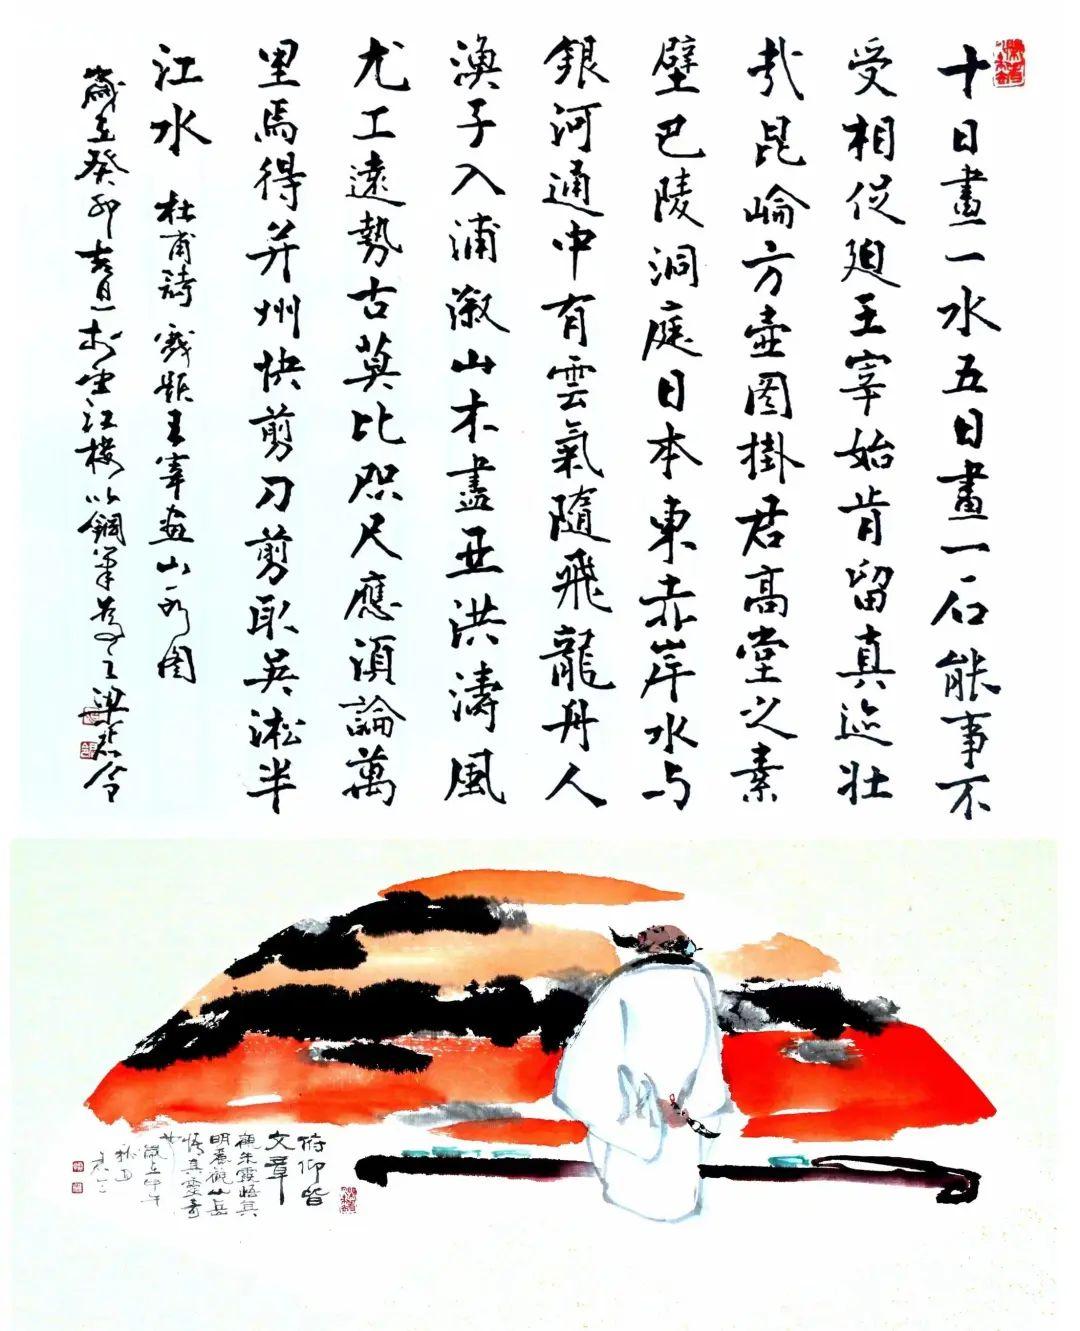 十日畫一水五日畫一石能事不
受相促迫王宰始肯留真迹壯
哉昆崘方壺图掛君高堂之素
壁巴陵洞庭日本東赤岸水与
銀河通中有雲氣隨飛龍舟人
漁子入浦漵山木盡亞洪濤風
尤工遠勢古莫比咫尺應須論萬
里焉得并州快剪刀剪取吴淞半
江水 杜甫詩 戲題王宰畫山水图
歲在癸卯吉旦於雲江樓以鋼筆為之
俯仰皆
文章
觀朱霞悟其
明麗觀山岳
悟其靈奇
歲在甲午